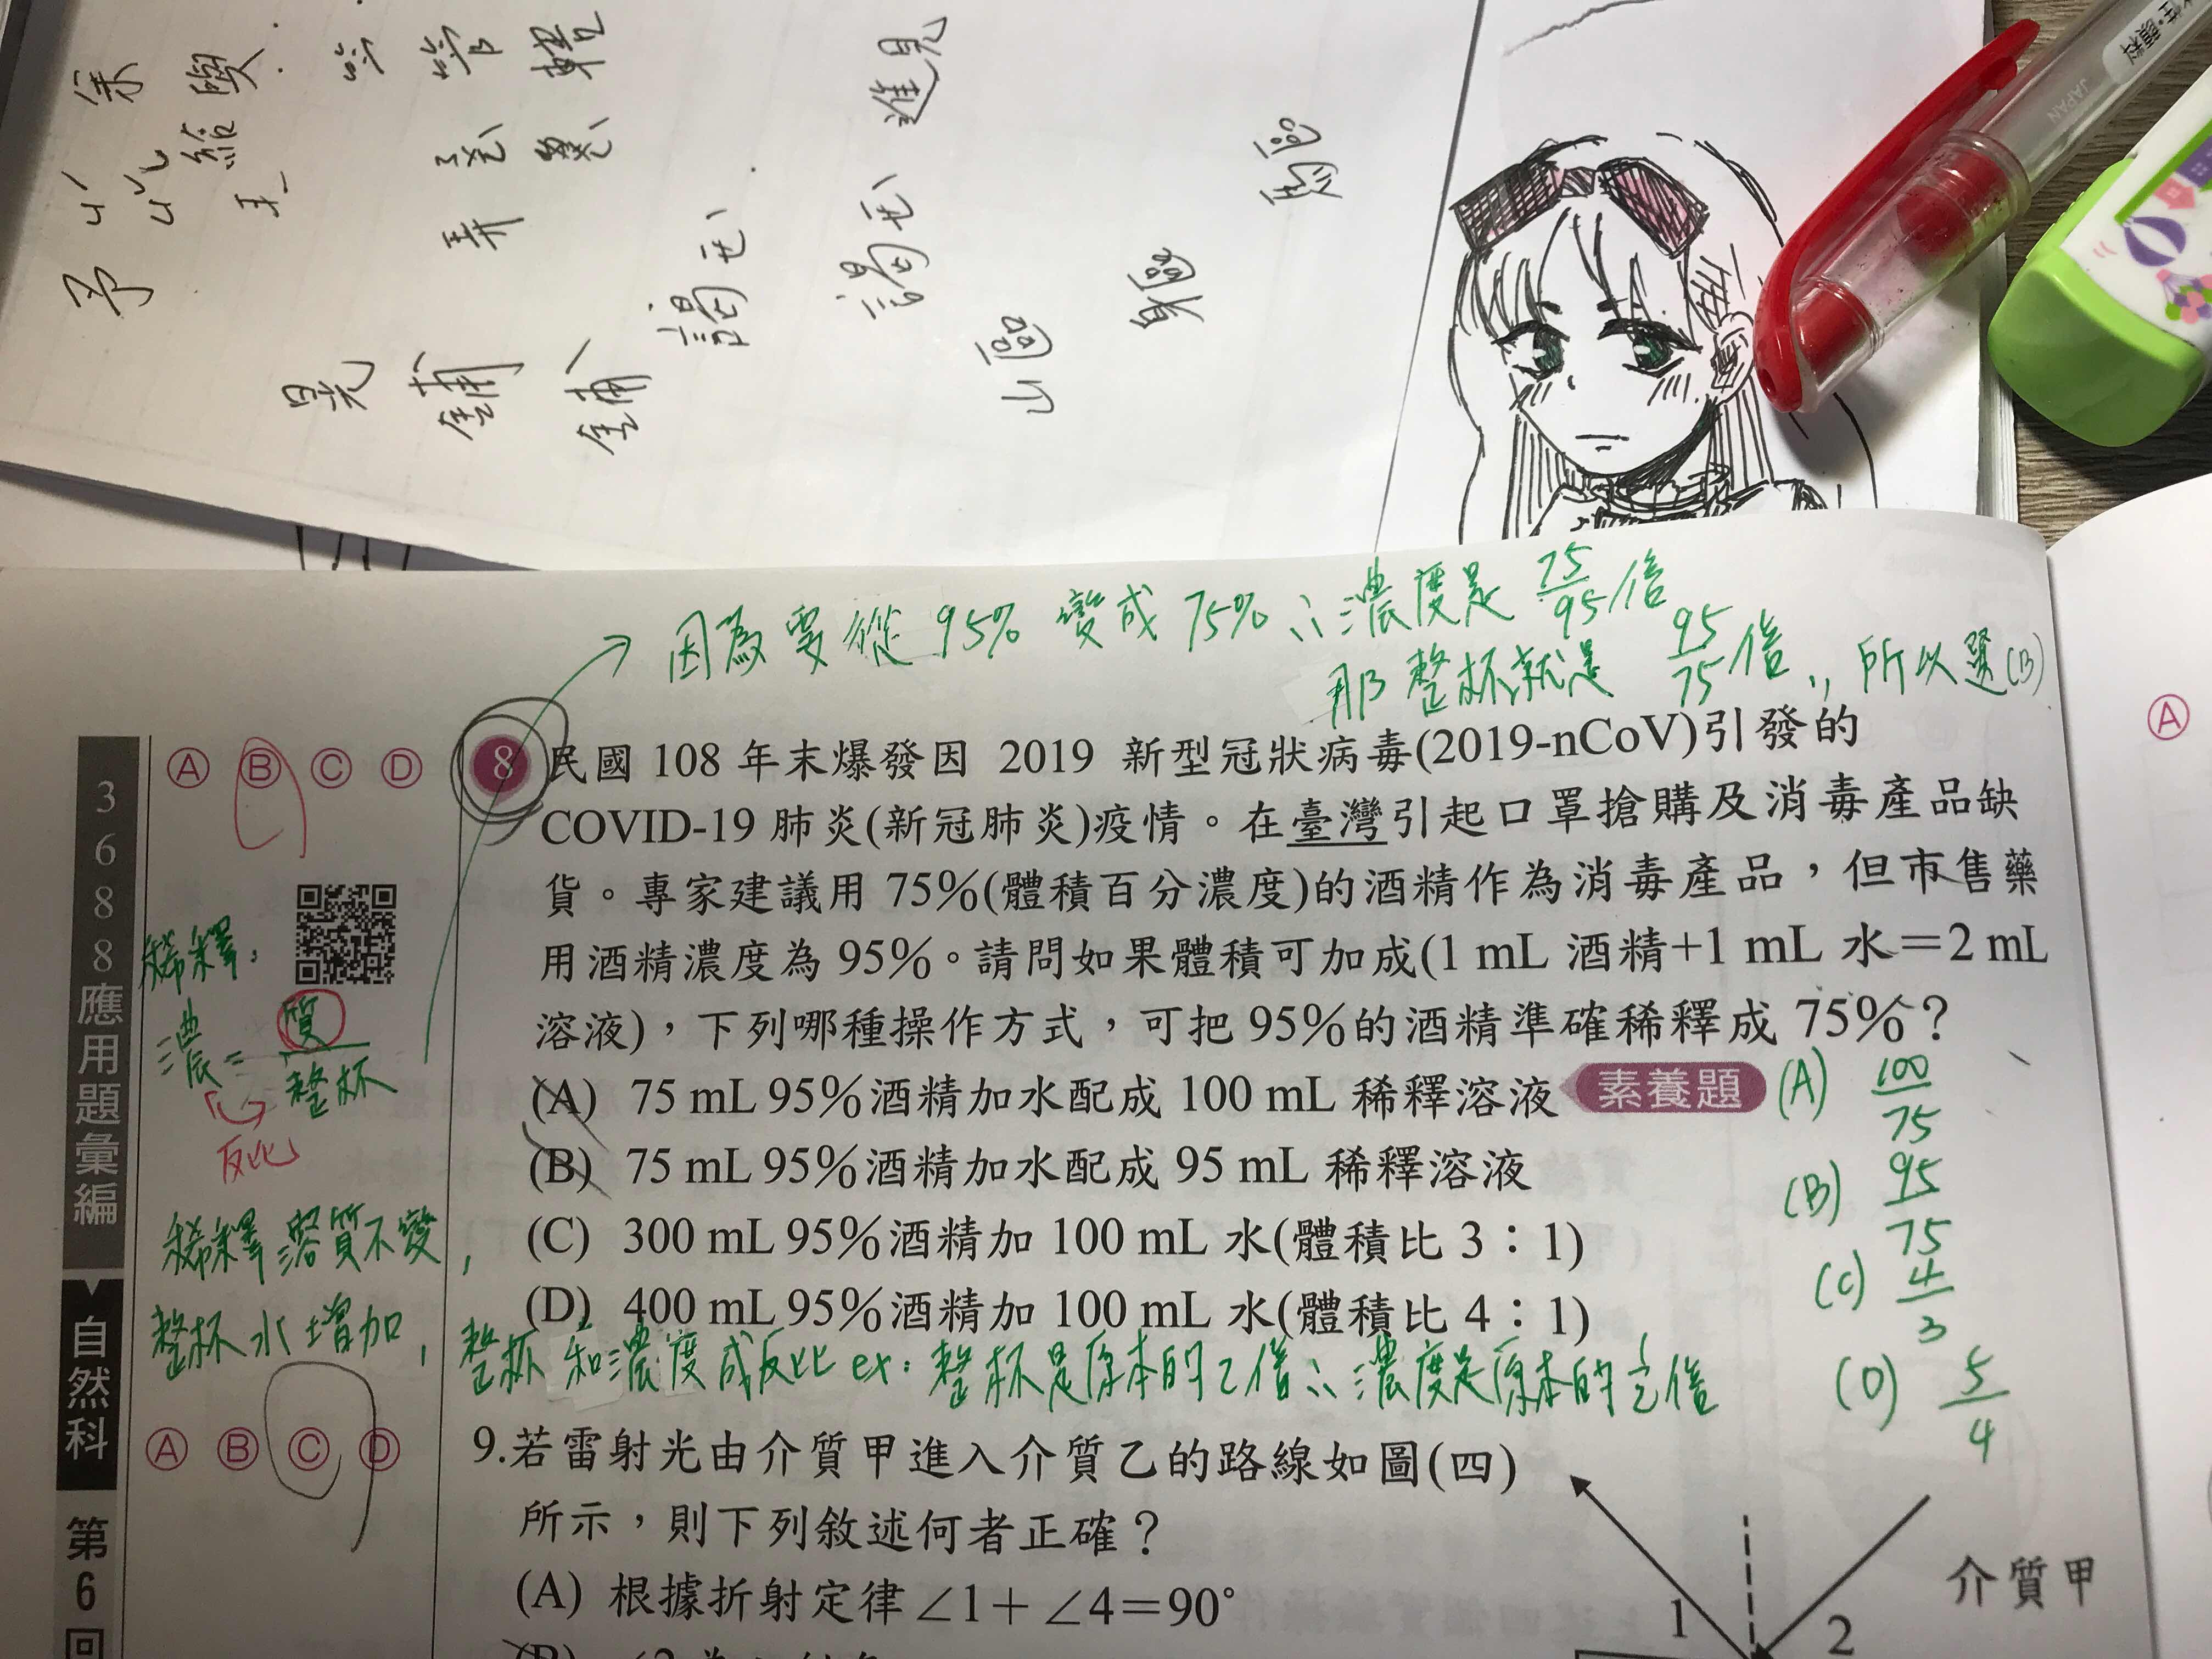 予
余
給
與
弄
晃
鏽
鏽
謁
謁
進見
JAPAN
因為要從95%變成75%∴濃度是75/95倍
那整杯就是95/75倍，所以選(B)
Ⓐ Ⓑ Ⓒ Ⓓ
8 民國 108 年末爆發因 2019 新型冠狀病毒(2019-nCoV)引發的
COVID-19 肺炎(新冠肺炎)疫情。在臺灣引起口罩搶購及消毒產品缺
貨。專家建議用 75%(體積百分濃度)的酒精作為消毒產品，但市售藥
用酒精濃度為 95%。請問如果體積可加成(1 mL 酒精+1 mL 水=2 mL
溶液)，下列哪種操作方式，可把 95%的酒精準確稀釋成 75%？
(A) 75 mL 95%酒精加水配成 100 mL 稀釋溶液 素養題
(B) 75 mL 95%酒精加水配成 95 mL 稀釋溶液
(C) 300 mL 95%酒精加 100 mL 水(體積比 3：1)
(D) 400 mL 95%酒精加 100 mL 水(體積比 4：1)
(A) 100/75
(B) 95/75
(C) 4/3
(D) 5/4
稀釋：
濃=質/整杯
反比
稀釋溶質不變，
整杯水增加，整杯和濃度成反比 ex：整杯是原本的2倍∴濃度是原本的1/2倍
Ⓐ Ⓑ Ⓒ Ⓓ
9.若雷射光由介質甲進入介質乙的路線如圖(四)
所示，則下列敘述何者正確？
(A) 根據折射定律∠1+∠4=90°
(B)
介質甲
1
2
3688應用題彙編
自然科
第6回
Ⓐ